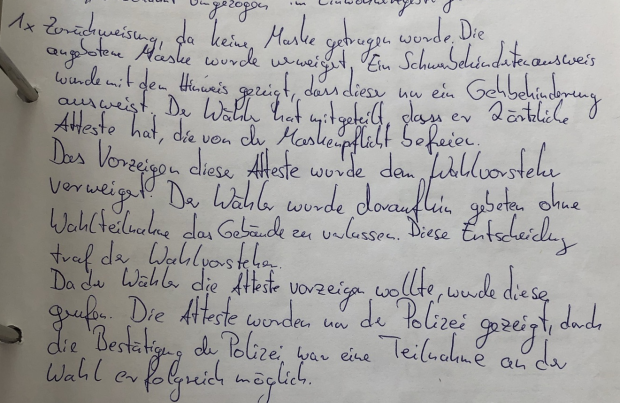 umgezogen im
1x Zurückweisung, da keine Maske getragen wurde. Die
angebotene Maske wurde verweigert. Ein Schwerbehindertenausweis
wurde mit dem Hinweis gezeigt, dass dieser nur ein Gehbehinderung
ausweist. Der Wähler hat mitgeteilt, dass er 2 ärztliche
Atteste hat, die von der Maskenpflicht befreien.
Das Vorzeigen dieser Atteste wurde dem Wahlvorsteher
verweigert. Der Wähler wurde daraufhin gebeten ohne
Wahlteilnahme das Gebäude zu verlassen. Diese Entscheidung
traf der Wahlvorsteher.
Da der Wähler die Atteste vorzeigen wollte, wurde diese
gerufen. Die Atteste wurden nur der Polizei gezeigt, durch
die Bestätigung der Polizei war eine Teilnahme an der
Wahl erfolgreich möglich.